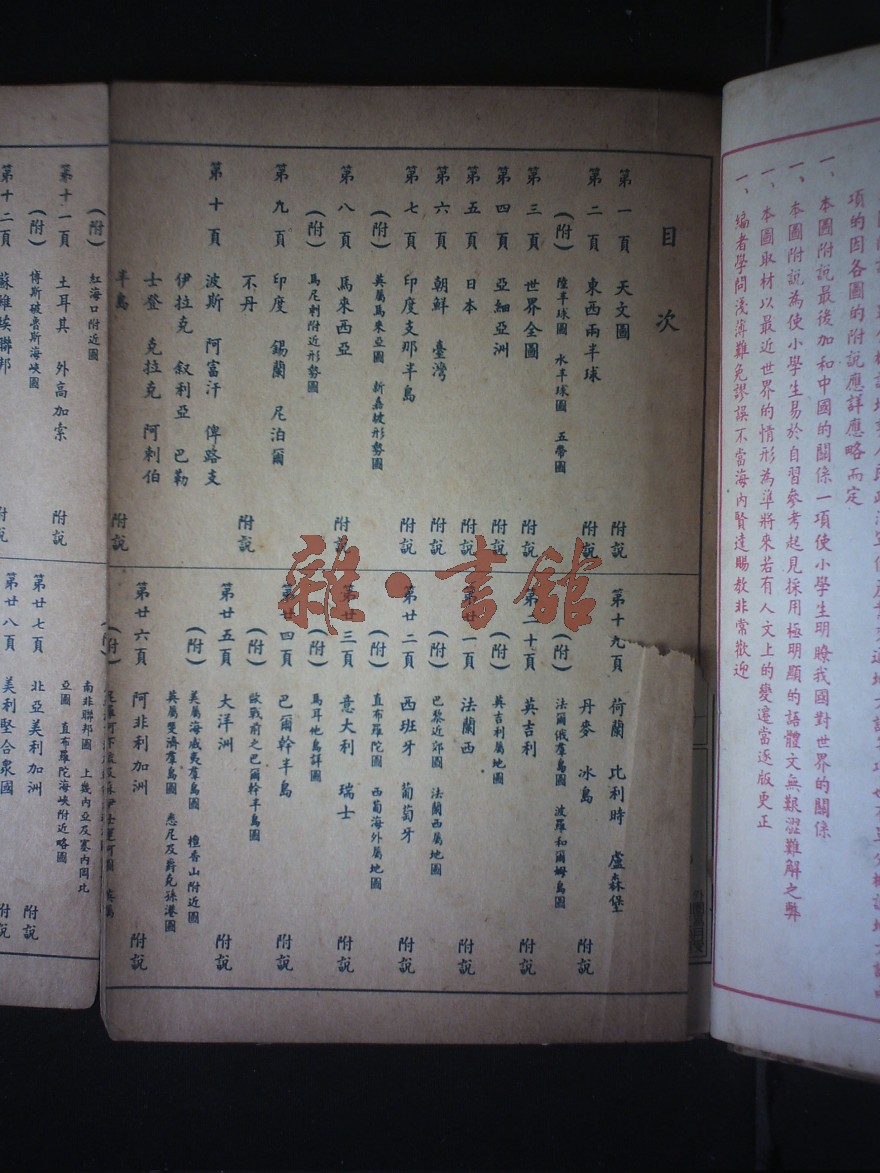 項的因各圖的附說應詳應略而定
一、本圖附說最後加和中國的關係一項使小學生明瞭我國對世界的關係
一、本圖附說為使小學生易於自習參考起見採用極明顯的語體文無艱澀難解之弊
一、本圖取材以最近世界的情形為準將來若有人文上的變遷當逐版更正
一、編者學問淺薄難免謬誤不當海內賢達賜教非常歡迎
目次
第一頁 天文圖 附說
第二頁 東西兩半球 附說
(附) 陸半球圖 水半球圖 五帶圖
第三頁 世界全圖 附說
第四頁 亞細亞洲 附說
第五頁 日本 附說
第六頁 朝鮮 臺灣 附說
第七頁 印度支那半島 附說
(附) 英屬馬來亞圖 新嘉坡形勢圖
第八頁 馬來西亞 附說
(附) 馬尼剌附近形勢圖
第九頁 印度 錫蘭 尼泊爾
不丹 附說
第十頁 波斯 阿富汗 俾路支
伊拉克 叙利亞 巴勒
士登 克拉克 阿剌伯
半島 附說
第十九頁 荷蘭 比利時 盧森堡
丹麥 冰島 附說
(附) 法爾俄羣島圖 波羅和爾姆島圖
第二十頁 英吉利 附說
(附) 英吉利屬地圖
第廿一頁 法蘭西 附說
巴黎近郊圖 法蘭西屬地圖
第廿二頁 西班牙 葡萄牙 附說
(附) 直布羅陀圖 西葡海外屬地圖
第廿三頁 意大利 瑞士 附說
(附) 馬耳他島詳圖
第廿四頁 巴爾幹半島 附說
(附) 歐戰前之巴爾幹半島圖
第廿五頁 大洋洲 附說
(附) 美屬海威夷羣島圖 檀香山附近圖
英屬斐濟羣島圖 悉尼及爵克孫港圖
第廿六頁 阿非利加洲 附說
(附)
(附) 紅海口附近圖
第十一頁 土耳其 外高加索 附說
(附) 博斯破魯斯海峽圖
第十二頁 蘇維埃聯邦 附說
南非聯邦圖 上幾內亞及塞內岡比
亞圖 直布羅陀海峽附近略圖
第廿七頁 北亞美利加洲 附說
第廿八頁 美利堅合衆國 附說
雜·書館